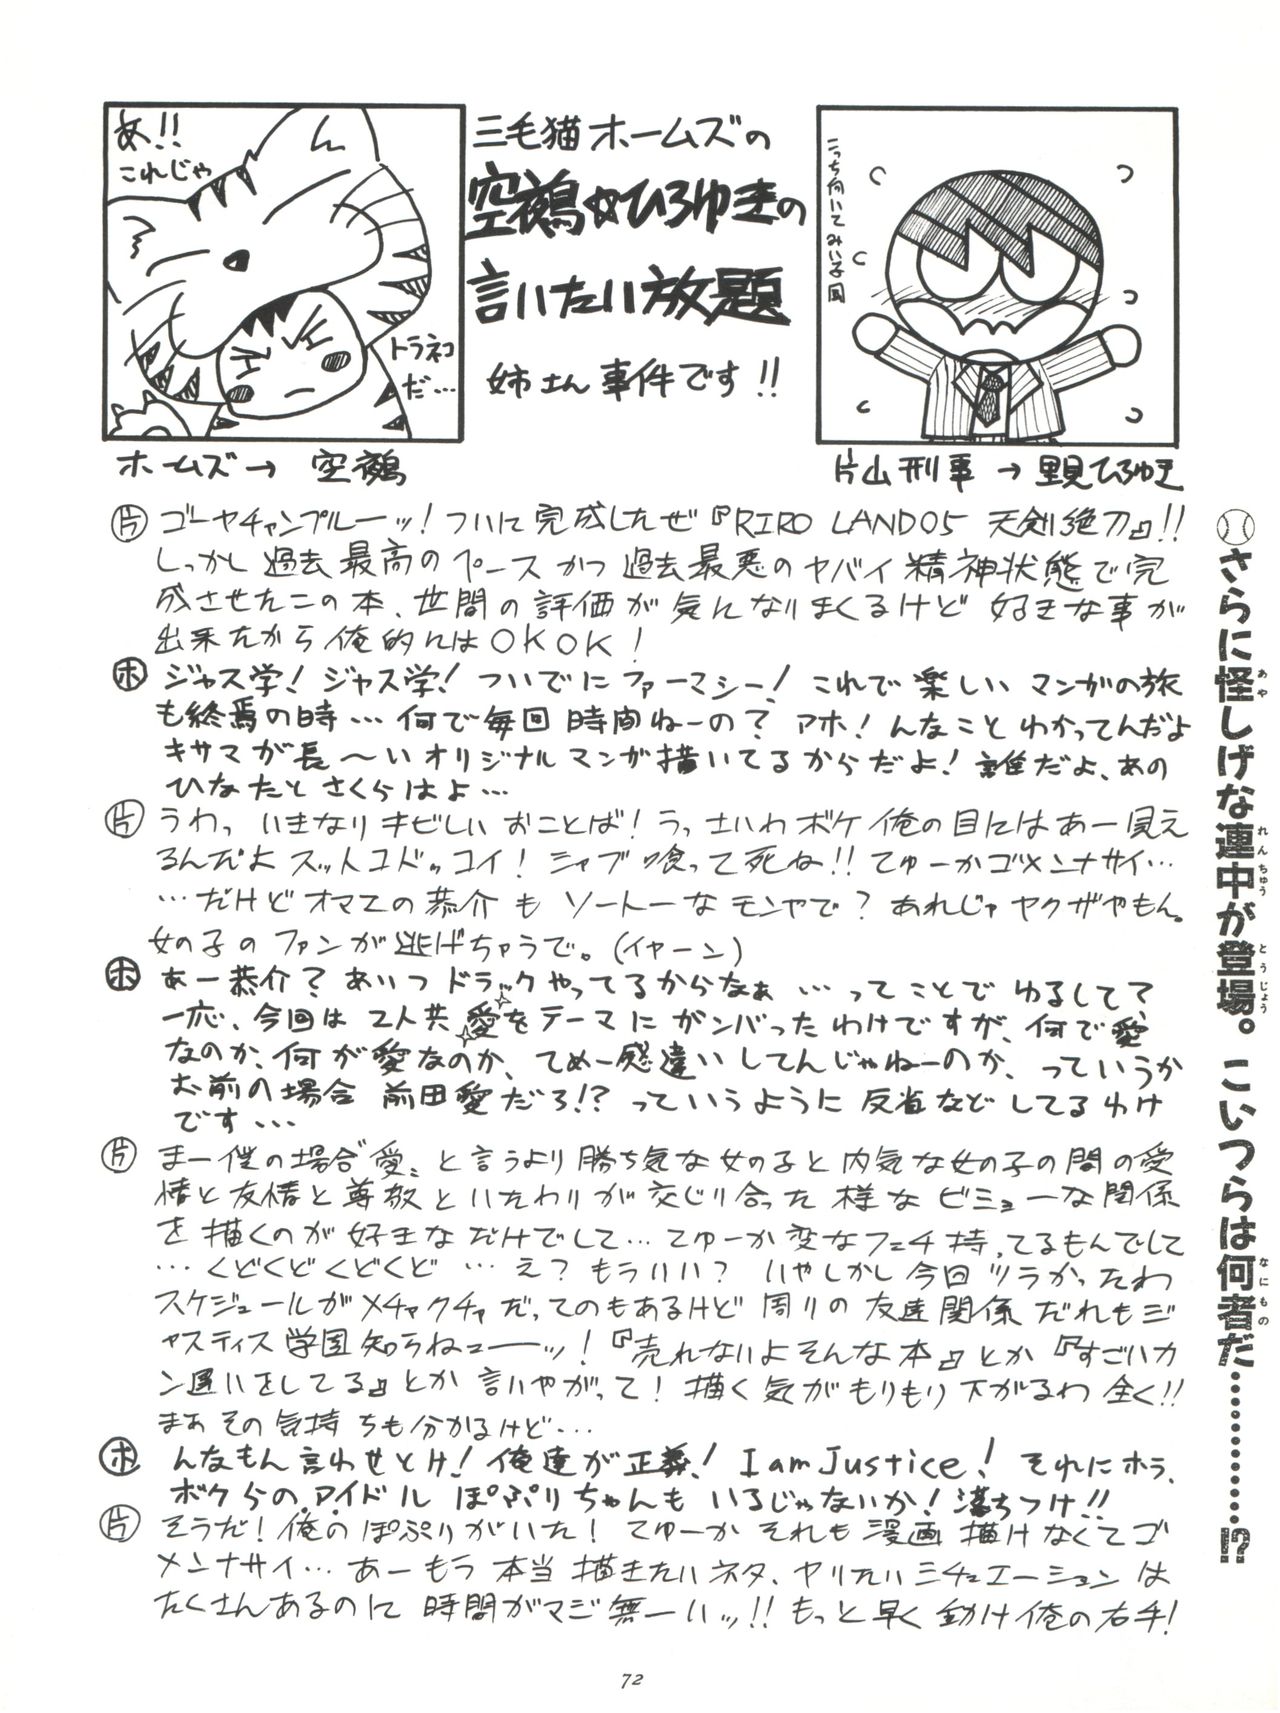 あ!!
これじゃ
トラネコ
だ…
三毛猫ホームズの
空鵺☆ひろゆきの
言いたい放題
姉さん事件です!!
こっち向いてみい子 風
ホームズ→ 空鵺
片山刑事 → 里見ひろゆき
片 ゴーヤチャンプルーッ!ついに完成したぜ『RIRO LAND05 天剣絶刀』!!
しっかし過去最高のペースかつ過去最悪のヤバイ精神状態で完
成させたこの本、世間の評価が気になりまくるけど好きな事が
出来たから俺的にはOKOK!
ホ ジャス学!ジャス学!ついでにファーマシー!これで楽しいマンガの旅
も終焉の時…何で毎回時間ねーの?アホ!んなことわかってんだよ
キサマが長〜いオリジナルマンガ描いてるからだよ!誰だよ、あの
ひなたとさくらはよ…
片 うわっいきなりキビしいおことば!うっさいわボケ俺の目にはあー見え
るんだよスットコドッコイ!シャブ喰って死ね!!てゆーかゴメンナサイ…
…だけどオマエの恭介もソートーなモンやで?あれじゃヤクザやもん。
女の子のファンが逃げちゃうで。(イヤーン)
ホ あー恭介?あいつドラックやってるからなぁ…ってことでゆるしてて?
一応、今回は2人共愛をテーマにガンバったわけですが、何で愛
なのか、何が愛なのか、てめー感違いしてんじゃねーのか、っていうか
お前の場合前田愛だろ!?っていうように反省などしてるわけ
です…
片 まー僕の場合“愛〟と言うより勝ち気な女の子と内気な女の子の間の愛
情と友情と尊敬といたわりが交じり合った様なビミョーな関係
を描くのが好きなだけでして…てゆーか変なフェチ持ってるもんでして
…くどくどくどくど…え?もういい?いやしかし今回ツラかったわ
スケジュールがメチャクチャだってのもあるけど周りの友達関係だれもジ
ャスティス学園知らねェーーッ!『売れないよそんな本』とか『すごいカ
ン違いをしてる』とか言いやがって!描く気がもりもり下がるわ全く!!
まぁその気持ちも分かるけど…
ホ んなもん言わせとけ!俺達が正義!I am Justice!それにホラ、
ボクらのアイドルぽぷりちゃんもいるじゃないか!落ちつけ!!
片 そうだ!俺のぽぷりがいた!てゆーかそれも漫画描けなくてゴ
メンナサイ…あーもう本当描きたいネタ、ヤリたいシチュエーションは
たくさんあるのに時間がマジ無ーいッ!!もっと早く動け俺の右手!
さらに怪しげな連中が登場。こいつらは何者だ…………!?
あや
れんちゅう
とうじょう
なにもの
72